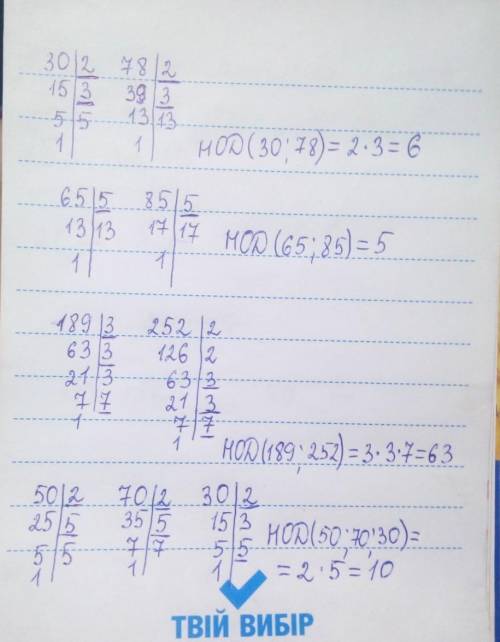 30|2 78|2
15|3 39|3
5|5 13|13
1| 1|
НОД(30;78)=2·3=6
65|5 85|5
13|13 17|17
1| 1|
НОД(65;85)=5
189|3 252|2
63|3 126|2
21|3 63|3
7|7 21|3
1 7|7
1
НОД(189;252)=3·3·7=63
50|2 70|2 30|2
25|5 35|5 15|3
5|5 7|7 5|5
1| 1| 1|
НОД(50;70;30)=
=2·5=10
ТВІЙ ВИБІР